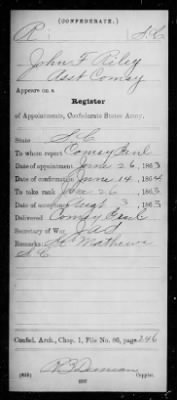 (CONFEDERATE.)
R S.C.
John F Riley
Asst Comsy
Appears on a
Register
of Appointments, Confederate States Army.
State S.C.
To whom report Comsy Genl
Date of appointment June 26, 1863
Date of confirmation June 14, 1864
To take rank June 26, 1863
Date of acceptance Augt 3, 1863
Delivered Comsy Genl
Secretary of War J.A.S.
Remarks: Mathews
S.C.
Confed. Arch., Chap. 1, File No. 86, page 246
Copyist.